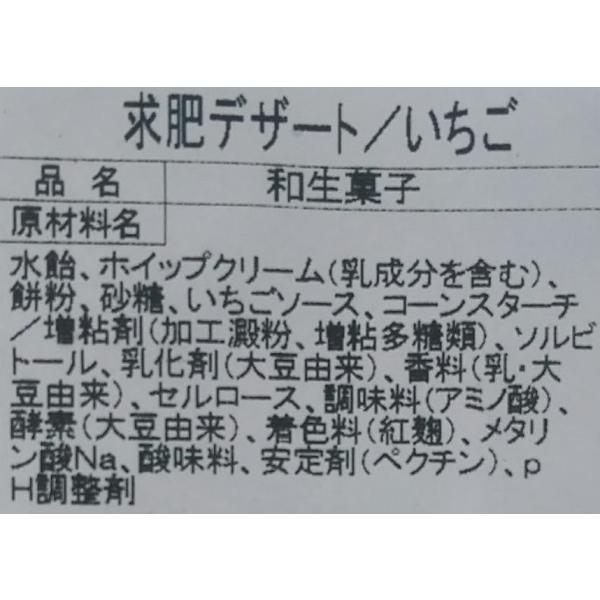 求肥デザート／いちご
品名 和生菓子
原材料名
水飴、ホイップクリーム(乳成分を含む)、
餅粉、砂糖、いちごソース、コーンスターチ
／増粘剤(加工澱粉、増粘多糖類)、ソルビ
トール、乳化剤(大豆由来)、香料(乳・大
豆由来)、セルロース、調味料(アミノ酸)、
酵素(大豆由来)、着色料(紅麹)、メタリ
ン酸Na、酸味料、安定剤(ペクチン)、p
H調整剤